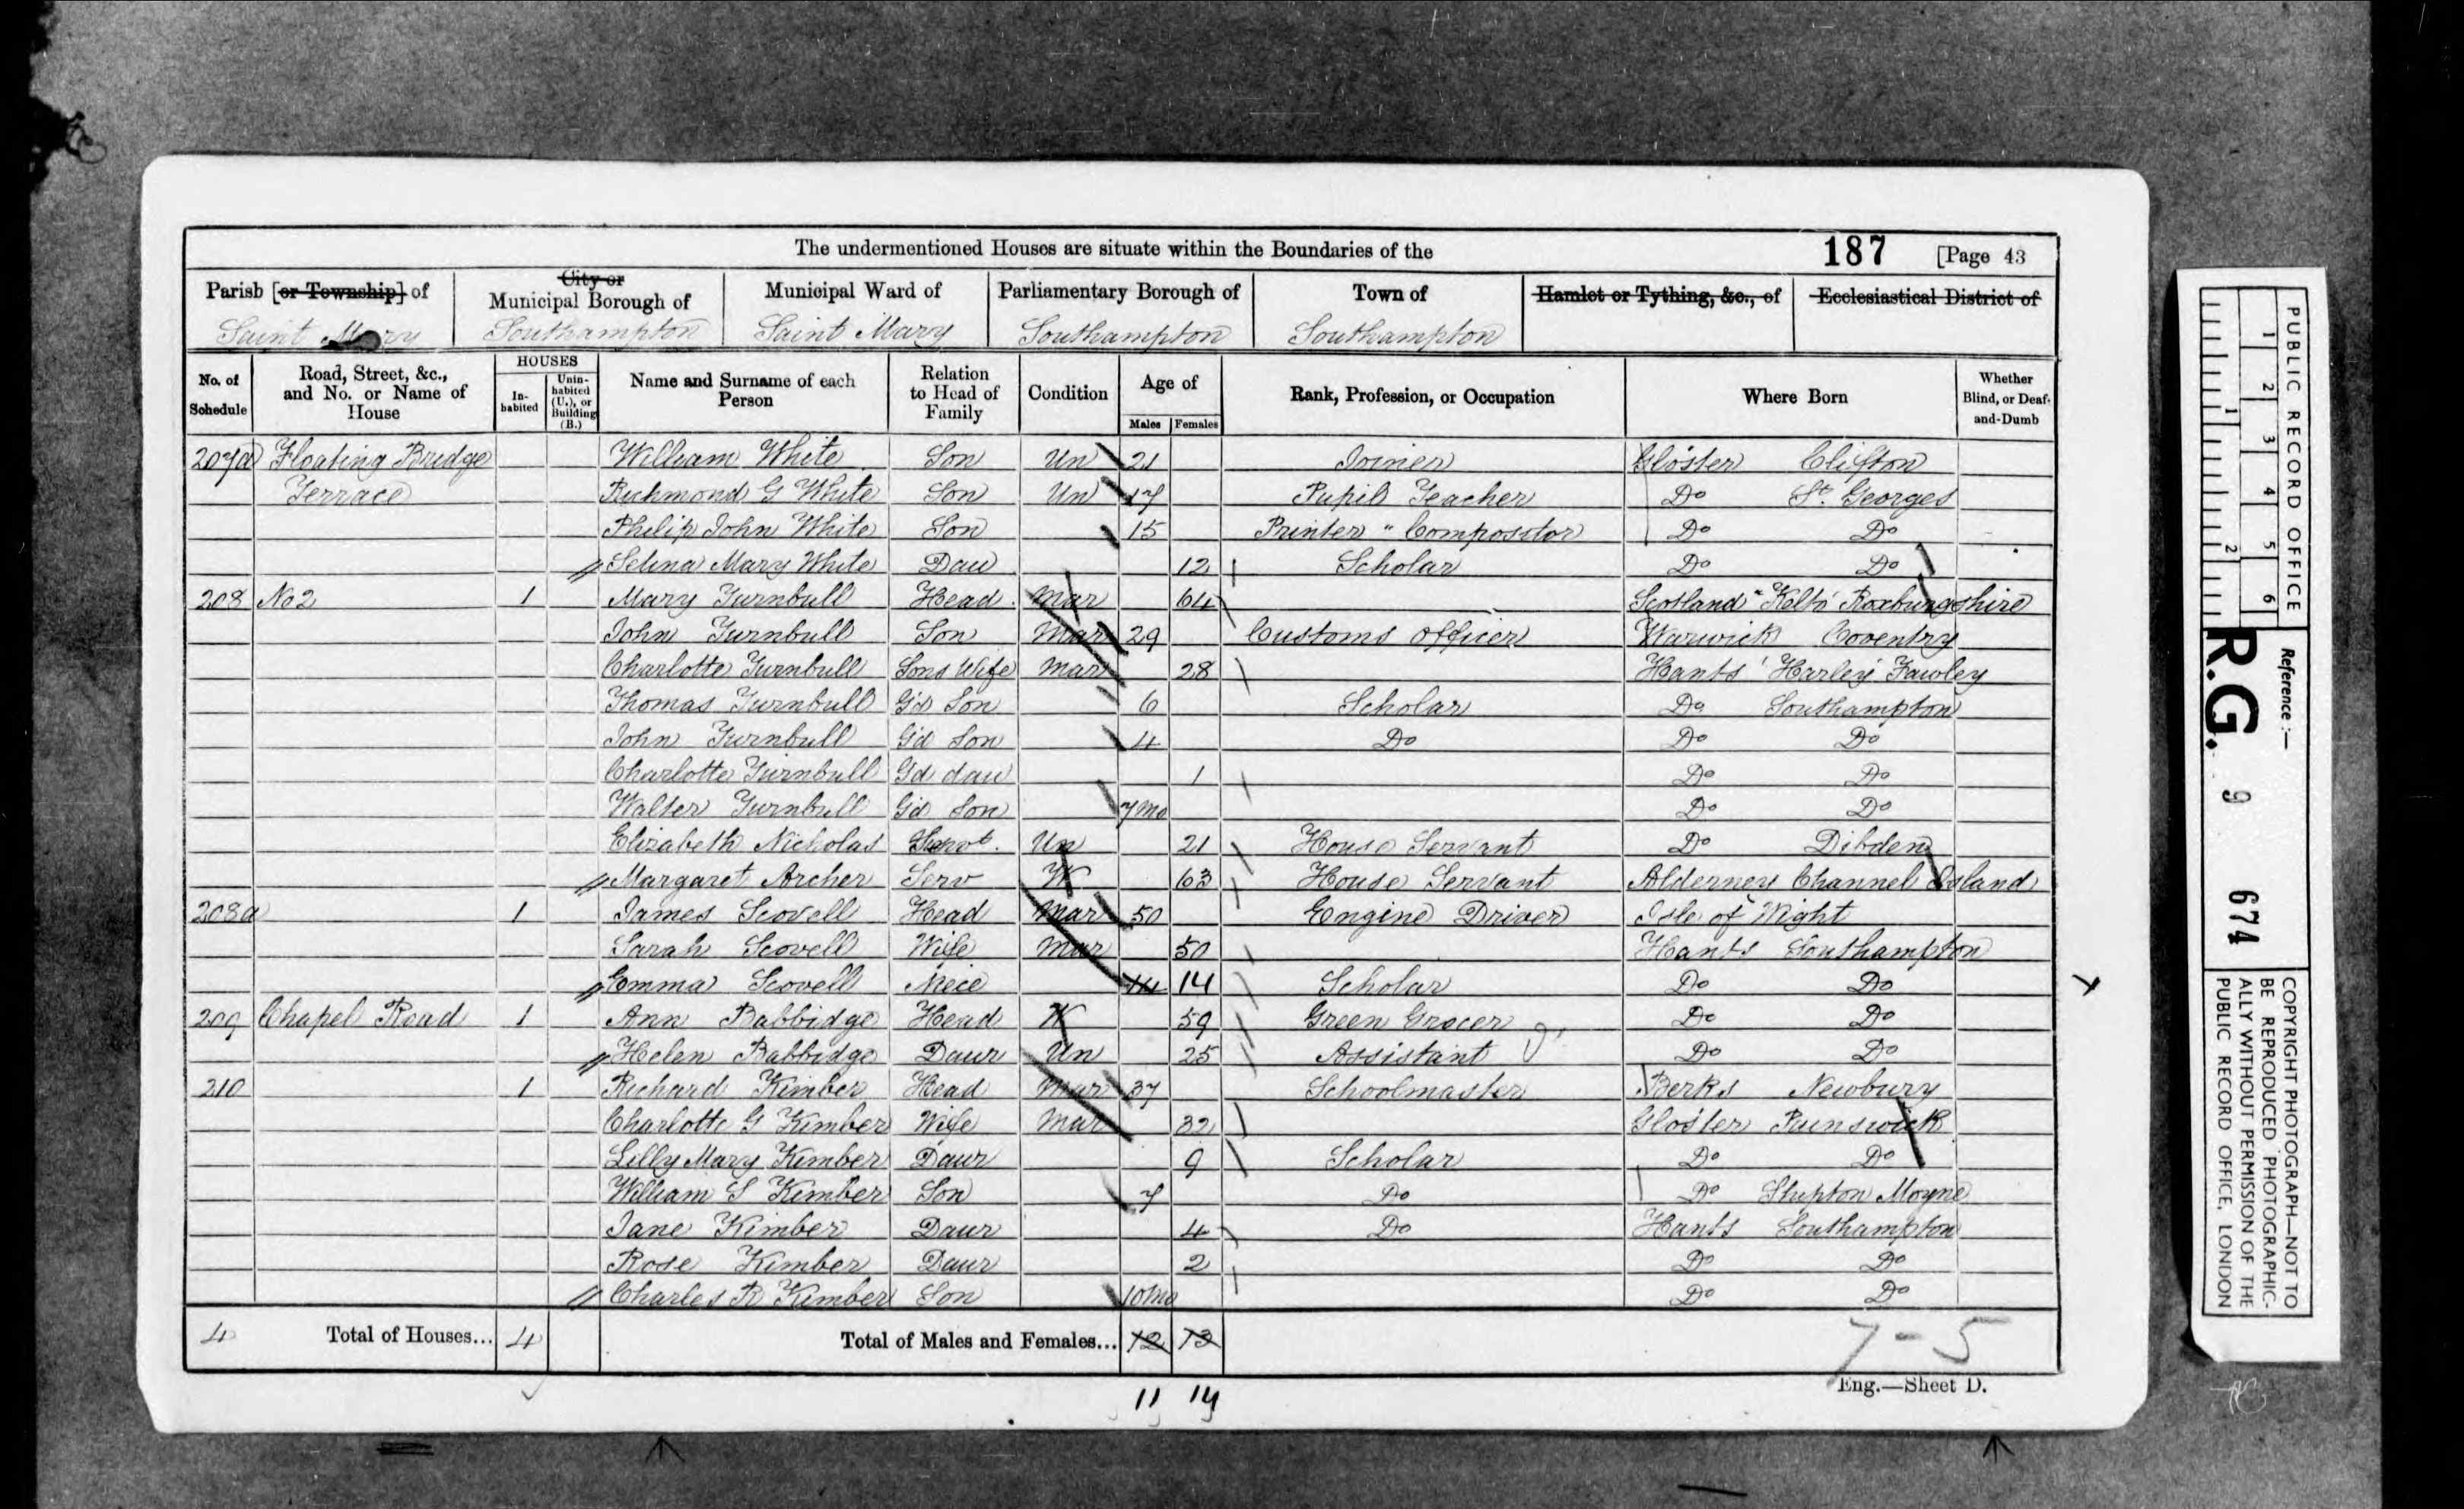 The undermentioned Houses are situate within the Boundaries of the 187 [Page 43
Parish [or Township] of City or Municipal Borough of Municipal Ward of Parliamentary Borough of Town of Hamlet or Tything, &c., of Ecclesiastical District of
Saint Mary Southampton Saint Mary Southampton Southampton
No. of Schedule Road, Street, &c., and No. or Name of House HOUSES Inhabited Uninhabited (U.), or Building (B.) Name and Surname of each Person Relation to Head of Family Condition Age of Males Females Rank, Profession, or Occupation Where Born Whether Blind, or Deaf-and-Dumb
207a Floating Bridge William White Son Un 21 Joiner Gloster Clifton
Terrace Richmond G White Son Un 17 Pupil Teacher Do St. Georges
Philip John White Son 15 Printer " Compositor Do Do
Selina Mary White Dau 12 Scholar Do Do
208 No 2 1 Mary Turnbull Head Mar 64 Scotland " Kelso Roxburgshire
John Turnbull Son Mar 29 Customs Officer Warwick Coventry
Charlotte Turnbull Sons Wife Mar 28 Hants Harley Fawley
Thomas Turnbull Gd Son 6 Scholar Do Southampton
John Turnbull Gd Son 4 Do Do Do
Charlotte Turnbull Gd dau 1 Do Do
Walter Turnbull Gd Son 7mo Do Do
Elizabeth Nicholas Servt. Un 21 House Servant Do Dibden
Margaret Archer Serv W 63 House Servant Alderney Channel Island
208a 1 James Scovell Head Mar 50 Engine Driver Isle of Wight
Sarah Scovell Wife Mar 50 Hants Southampton
Emma Scovell Neice 14 14 Scholar Do Do
209 Chapel Road 1 Ann Babbidge Head W 59 Green Grocer Do Do
Helen Babbidge Daur Un 25 Assistant Do Do
210 1 Richard Kimber Head Mar 37 Schoolmaster Berks Newbury
Charlotte G Kimber Wife Mar 32 Gloster Painswick
Lilly Mary Kimber Daur 9 Scholar Do Do
William S Kimber Son 7 Do Do Shipton Moyne
Jane Kimber Daur 4 Do Hants Southampton
Rose Kimber Daur 2 Do Do
Charles R Kimber Son 10mo Do Do
4 Total of Houses... 4 Total of Males and Females... 12 13
7-5
Eng.—Sheet D.
11 14
PUBLIC RECORD OFFICE
1 2 3 4 5 6
1 2
Reference :—
R.G. 9 674
COPYRIGHT PHOTOGRAPH—NOT TO
BE REPRODUCED PHOTOGRAPHIC-
ALLY WITHOUT PERMISSION OF THE
PUBLIC RECORD OFFICE, LONDON